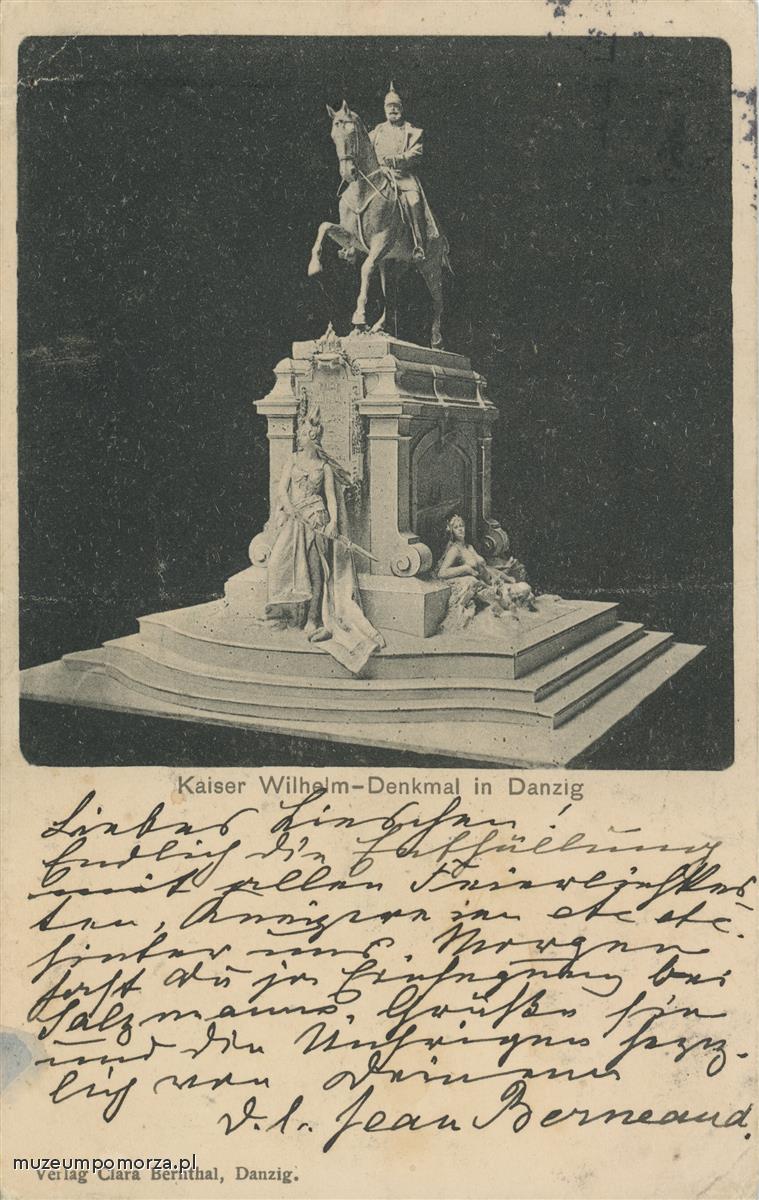 Kaiser Wilhelm-Denkmal in Danzig
Liebes Lieschen!
Endlich die Enthüllung
mit allen Feierlichkei
ten, Kneipereien etc etc.
hinter uns. Morgen
hast du ja Einsegnung bei
Salzmanns. Grüße sie
und die Übrigen herz-
lich von Deinem
d. l. Jean Berneaud.
muzeumpomorza.pl
Verlag Clara Bernthal, Danzig.